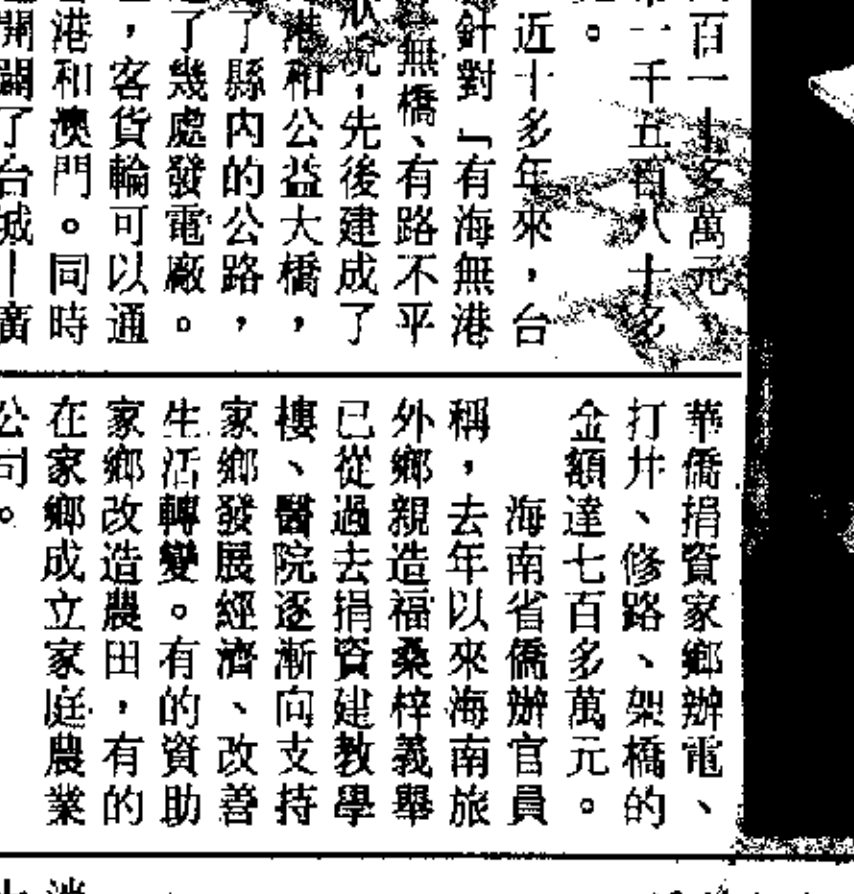 百一十多萬元、
一千五百八十多
。
近十多年來，台
針對「有海無港
無橋、有路不平
狀況，先後建成了
港和公益大橋，
了縣內的公路，
了幾處發電廠。
，客貨輪可以通
港和澳門。同時
開闢了台城—廣
華僑捐資家鄉辦電、
打井、修路、架橋的
金額達七百多萬元。
海南省僑辦官員
稱，去年以來海南旅
外鄉親造福桑梓義舉
已從過去捐資建教學
樓、醫院逐漸向支持
家鄉發展經濟、改善
生活轉變。有的資助
家鄉改造農田，有的
在家鄉成立家庭農業
公司。